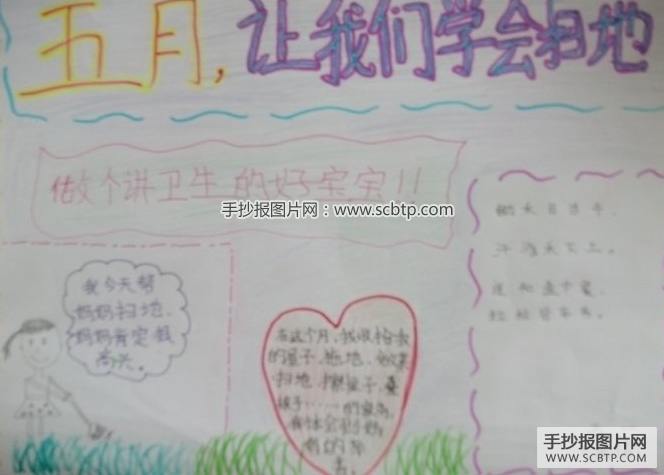 五月,让我们学会扫地
做个讲卫生的好宝宝!!
手抄报图片网：www.scbtp.com
我今天帮
妈妈扫地,
妈妈肯定很
高兴。
在这个月,我收拾我
的屋子、拖地、
扫地、擦桌子、叠
被子……的家务,
我体会到妈
妈的辛
苦
锄禾日当午,
汗滴禾下土。
谁知盘中餐,
粒粒皆辛苦。
手抄报图片网
WWW.SCBTP.COM